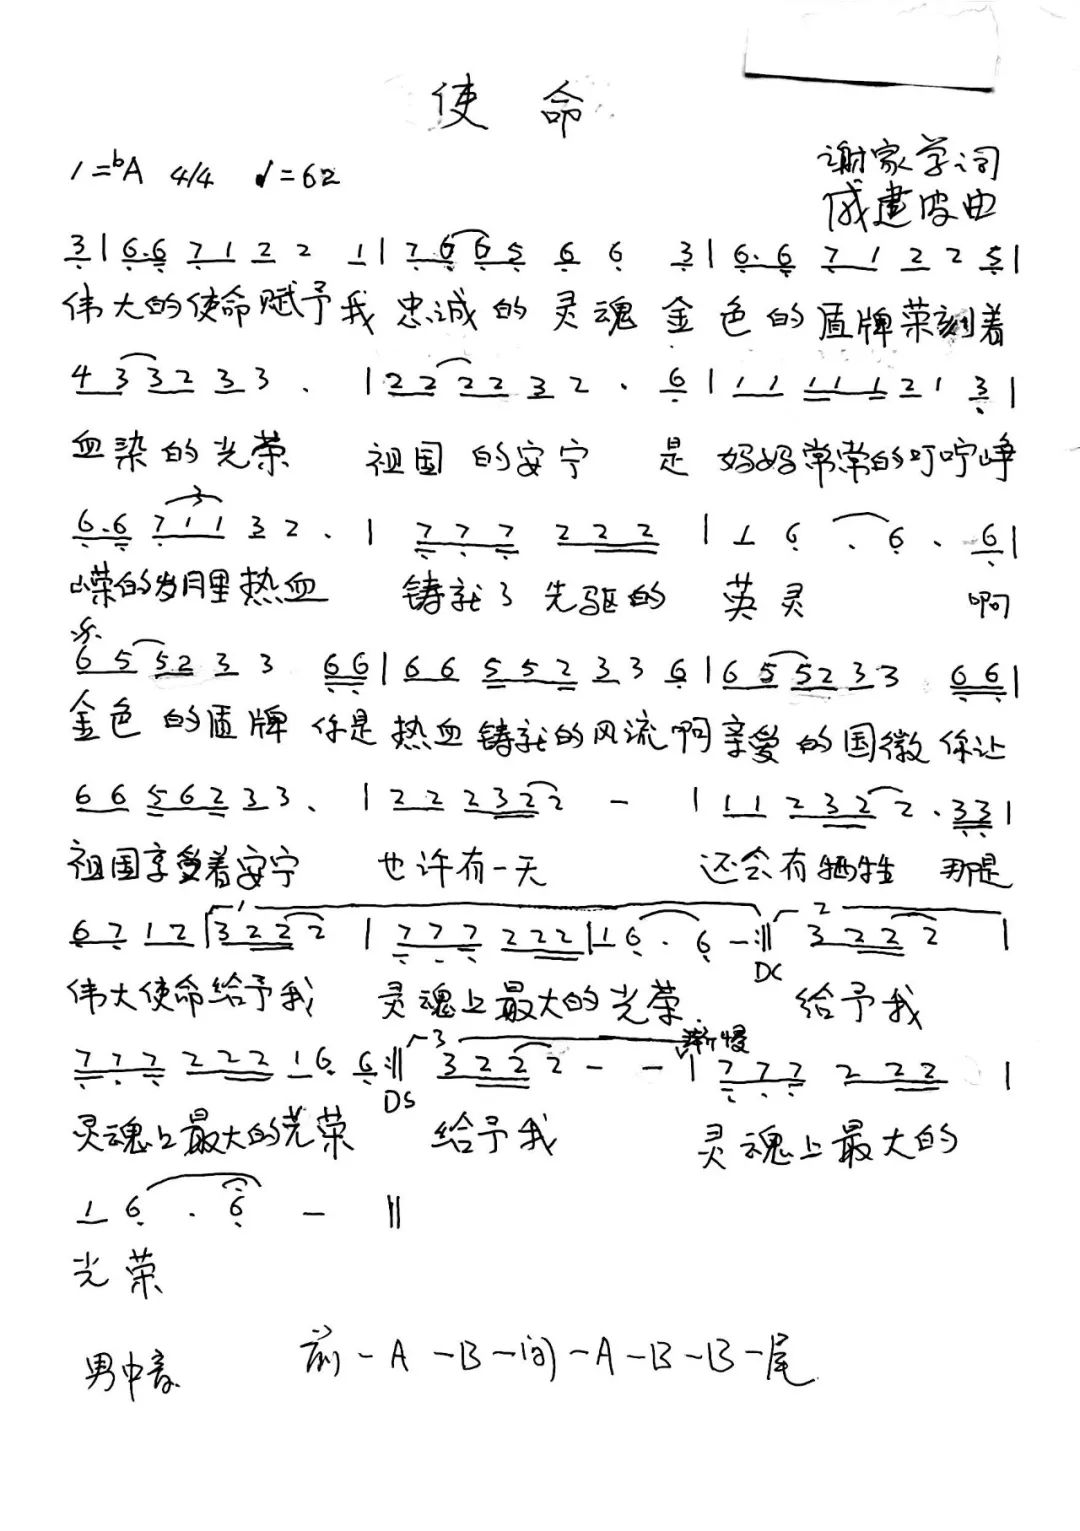 使 命
1=bA 4/4 ♩=62
谢家学词
成建波曲
3 | 6.6 7 1 2 2 1 | 7.6 6 5 6 6 3 | 6.6 7 1 2 2 5 |
伟大的使命赋予我 忠诚的灵魂 金色的盾牌荣刻着
4 3 3 2 3 3 . | 2 2 2 2 3 2 . 6 | 1 1 1 1 1 2 1 3 |
血染的光荣 祖国的安宁 是妈妈常常的叮咛峥
6.6 7 1 1 3 2 . | 7 7 7 2 2 2 | 1 6 . 6 . 6 |
嵘的岁月里热血 铸就了先驱的 英灵 啊
6 5 5 2 3 3 6 6 | 6 6 5 5 2 3 3 6 | 6 5 5 2 3 3 6 6 |
金色的盾牌 你是热血铸就的风流啊亲爱的国徽你让
6 6 5 6 2 3 3 . | 2 2 2 3 2 2 - | 1 1 2 3 2 2 . 3 3 |
祖国享受着安宁 也许有一天 还会有牺牲 那是
1 2
6 7 1 2 | 3 2 2 2 | 7 7 7 2 2 2 | 1 6 . 6 - :‖ 3 2 2 2 |
DC
伟大使命给予我 灵魂上最大的光荣. 给予我
3 渐慢
7 7 7 2 2 2 1 6 6 :‖ 3 2 2 2 - - | 7 7 7 2 2 2 |
DS
灵魂上最大的光荣 给予我 灵魂上最大的
1 6 . 6 - ‖
光荣
男中音 前-A-B-间-A-B-B-尾